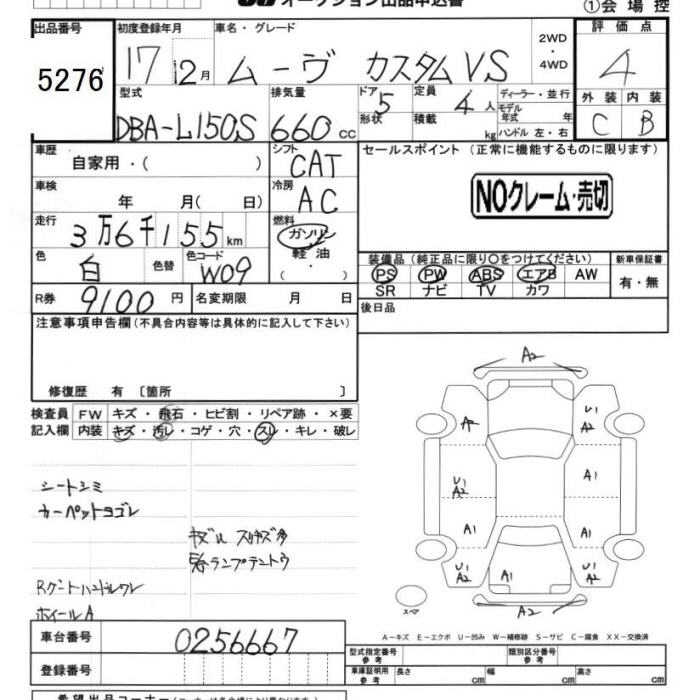 オークション出品申込書
①会場控
出品番号 初度登録年月 車名・グレード 2WD・4WD 評価点
5276 17 12月 ムーヴ カスタムVS 4
型式 排気量 ドア 定員 ディーラー・並行 外装 内装
5 4人 モデル年式 年 C B
DBA-L150S 660cc 形状 積載 kg ハンドル 左・右
車歴 シフト セールスポイント (正常に機能するものに限ります)
自家用・( ) CAT
車検 冷房 NOクレーム・売切
年 月( 日) AC
走行 燃料
3万6千155km ガソリン
色 色替 色コード 軽油 装備品 (純正品に限り○をつけてください) 新車保証書
白 W09 (・) PS PW ABS エアB AW 有・無
SR ナビ TV カワ
R券 9100円 名変期限 月 日 後日品
注意事項申告欄(不具合内容等は具体的に記入して下さい)
修復歴 有 〔箇所 〕
検査員 FW キズ・飛石・ヒビ割・リペア跡・×要
記入欄 内装 キズ・汚レ・コゲ・穴・スレ・キレ・破レ
シートシミ
カーペットヨゴレ
キズ凹 スリキズ多
ランプテントウ
ホイールA
A2
A2 U1 A2
U1 A2 A1
A1 A1
U1 A2 A1 U1 A2
スペア A2
A-キズ E-エクボ U-凹み W-補修跡 S-サビ C-腐食 XX-交換済
車台番号 0256667
型式指定番号 参考 類別区分番号 参考
登録番号
車庫証明用 参考 長さ cm 幅 cm 高さ cm
希望出品コーナー